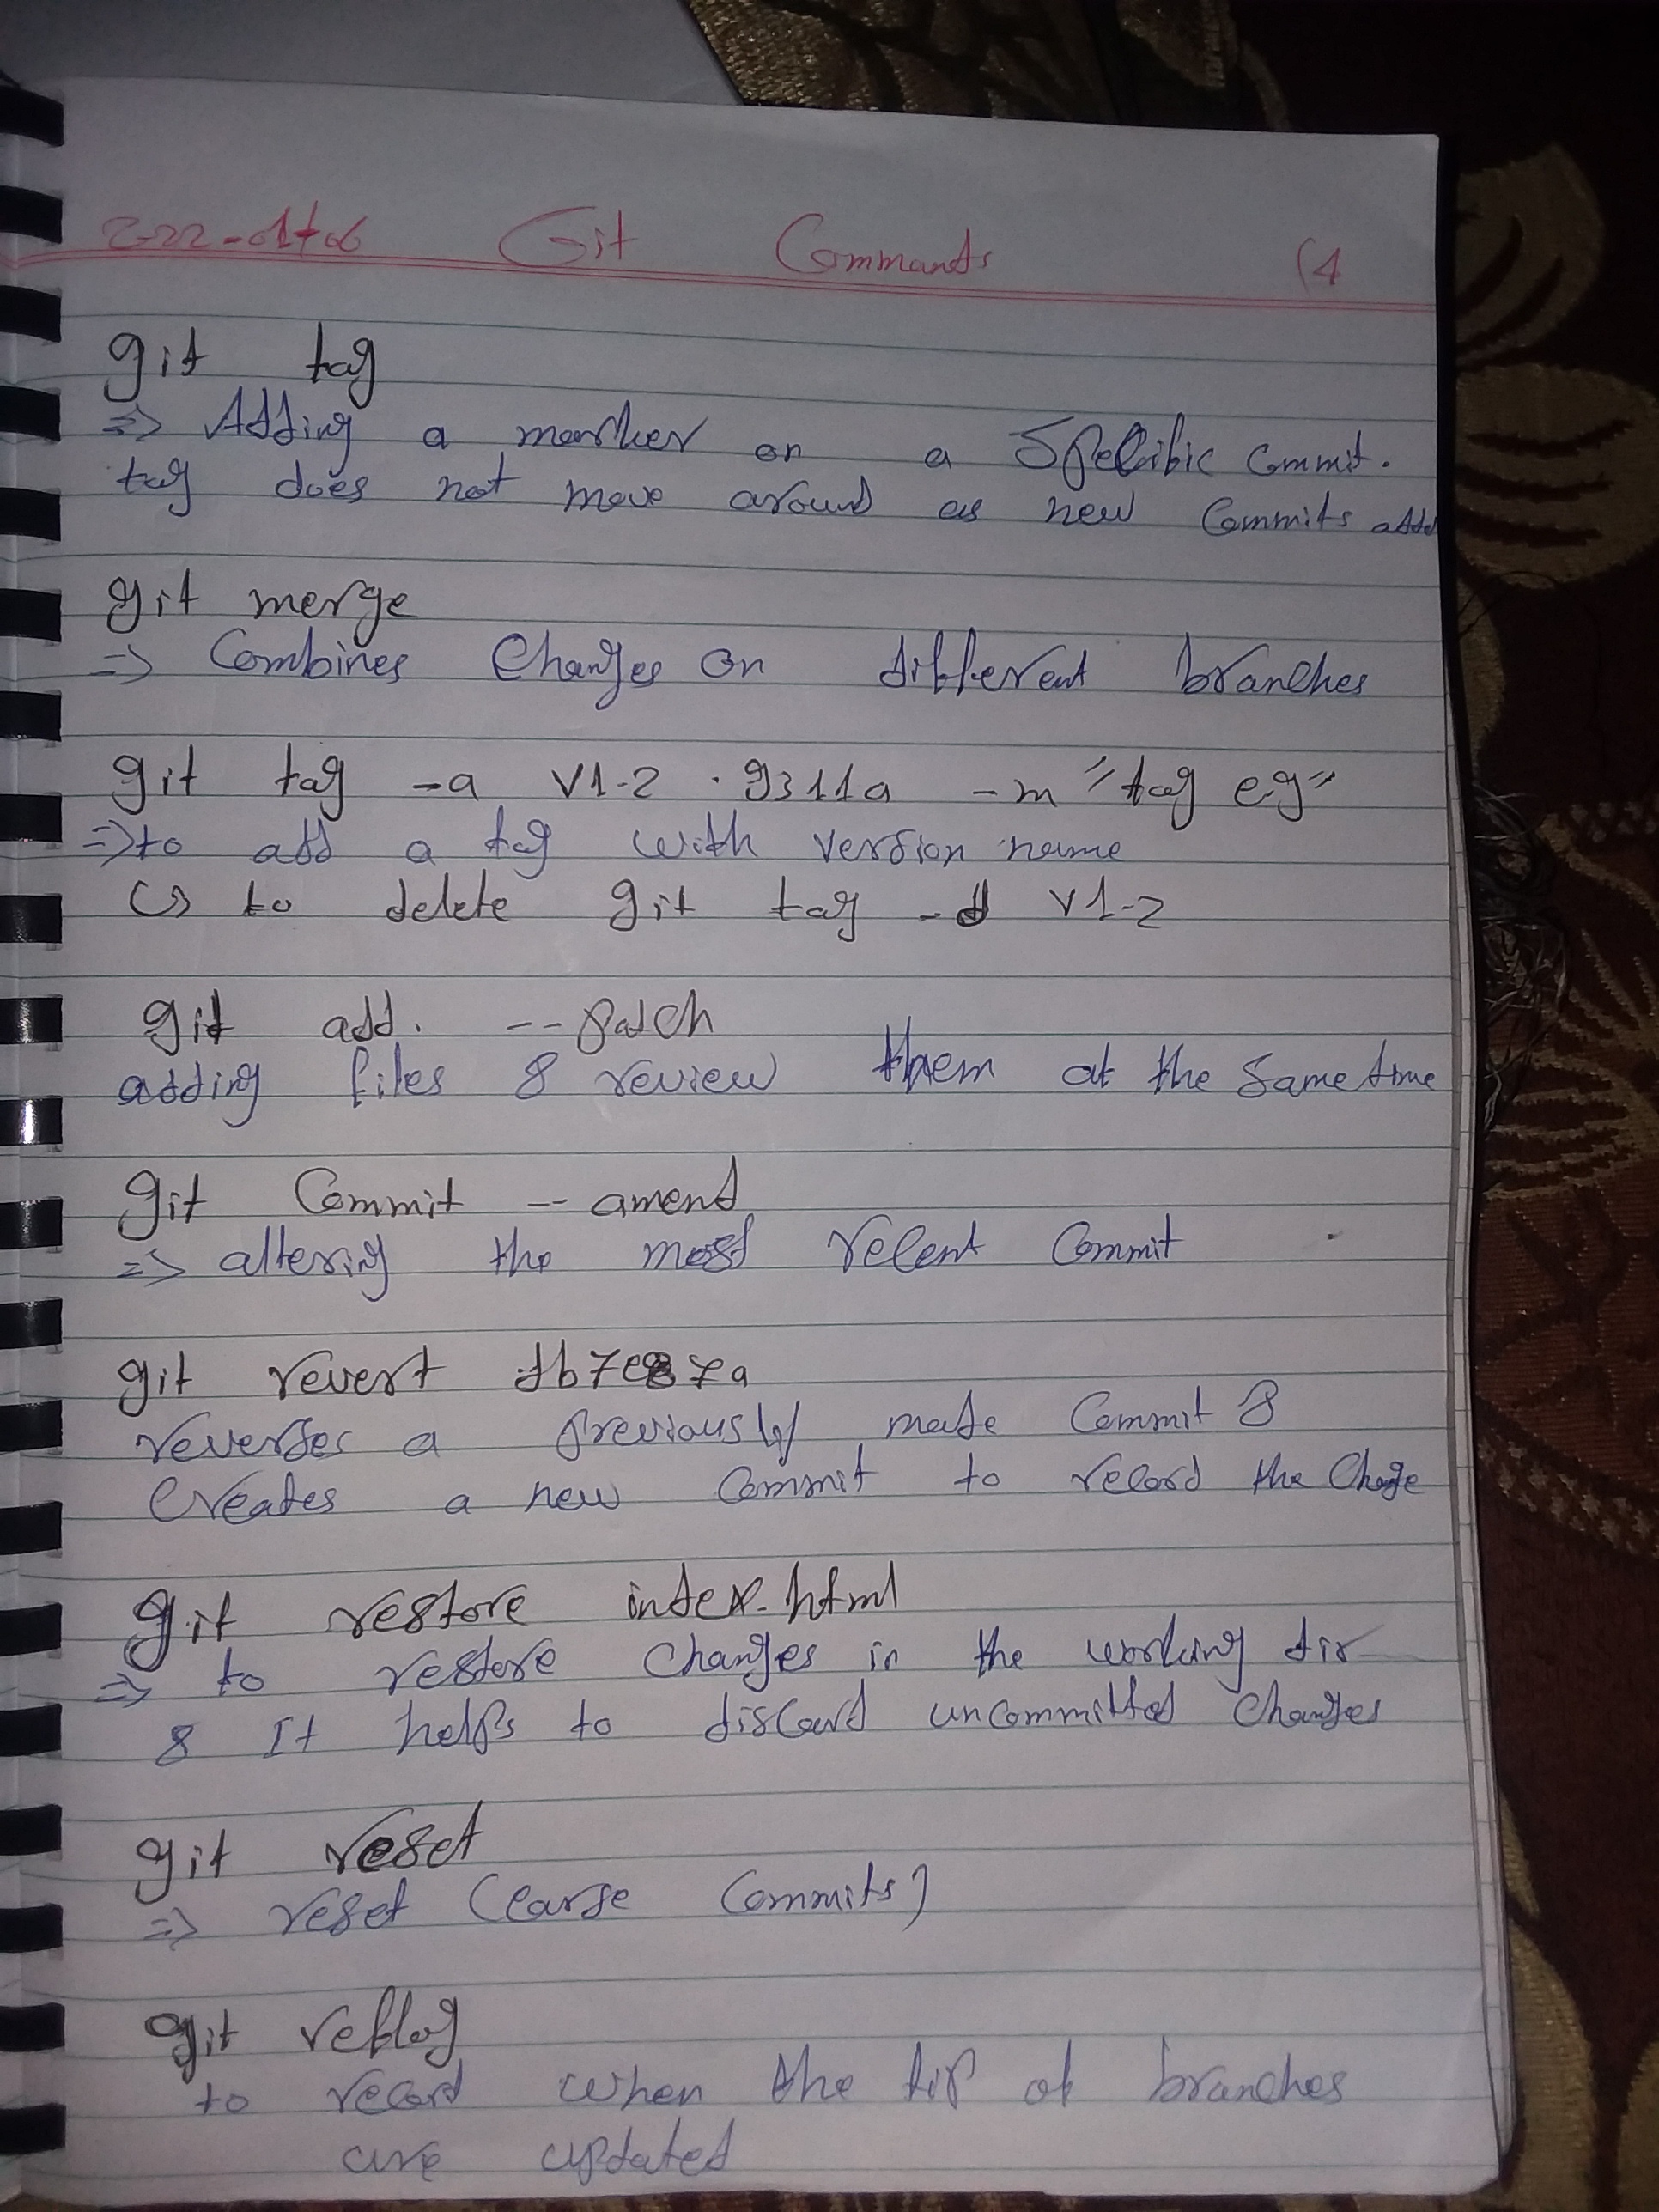 Git Commands (4
git tag
=> Adding a marker on a specific commit.
tag does not move around as new commits added
git merge
=> Combines changes on different branches
git tag -a v1-2 . 9311a -m "tag eg"
=> to add a tag with version name
to delete git tag -d v1-2
git add . --patch
adding files & review them at the same time
git commit -- amend
=> altering the most recent commit
git revert
reverses a previously made commit &
creates a new commit to record the change
git restore index.html
=> to restore changes in the working dir
& It helps to discard uncommitted changes
git reset
=> reset (earse commits)
git reflog
to record when the tip of branches
are updated